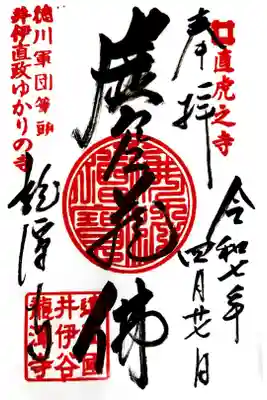 直虎之寺
奉拝
令和七年
四月廿七日
虚空蔵佛
徳川軍団筆頭
井伊直政ゆかりの寺
龍潭寺
井伊谷
龍潭寺